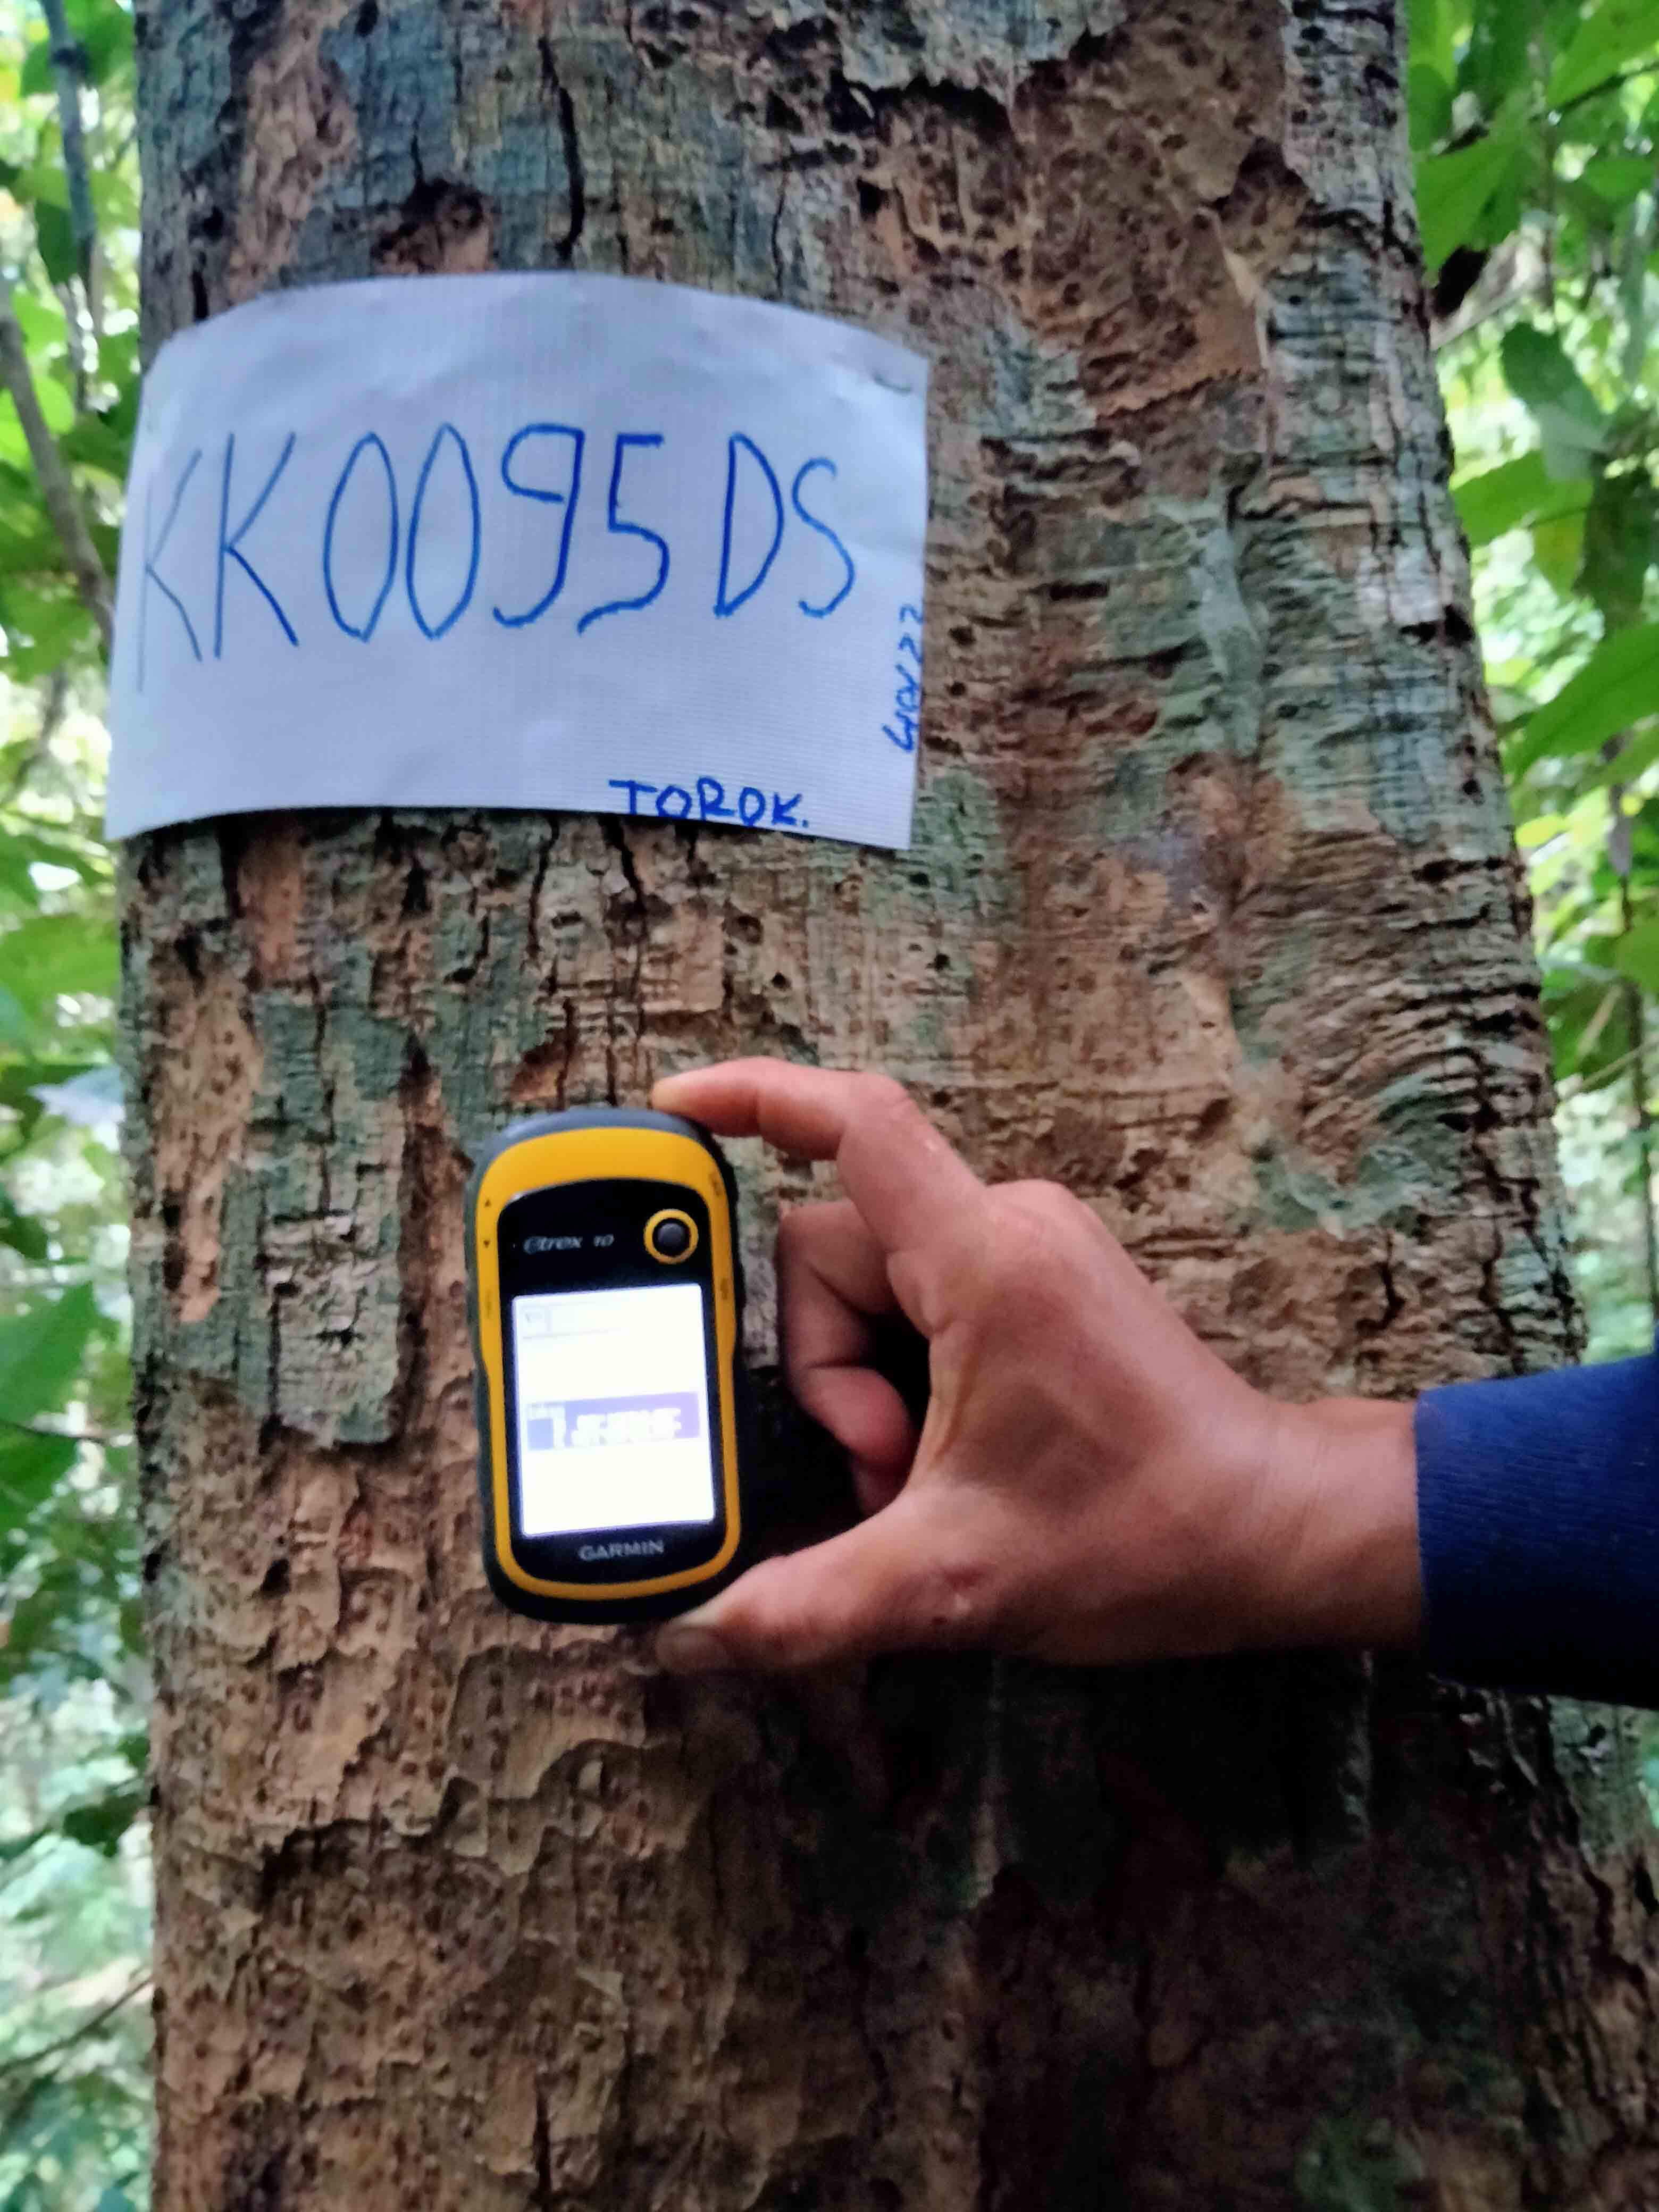 KK0095DS
TOROK.
etrex 10
GARMIN